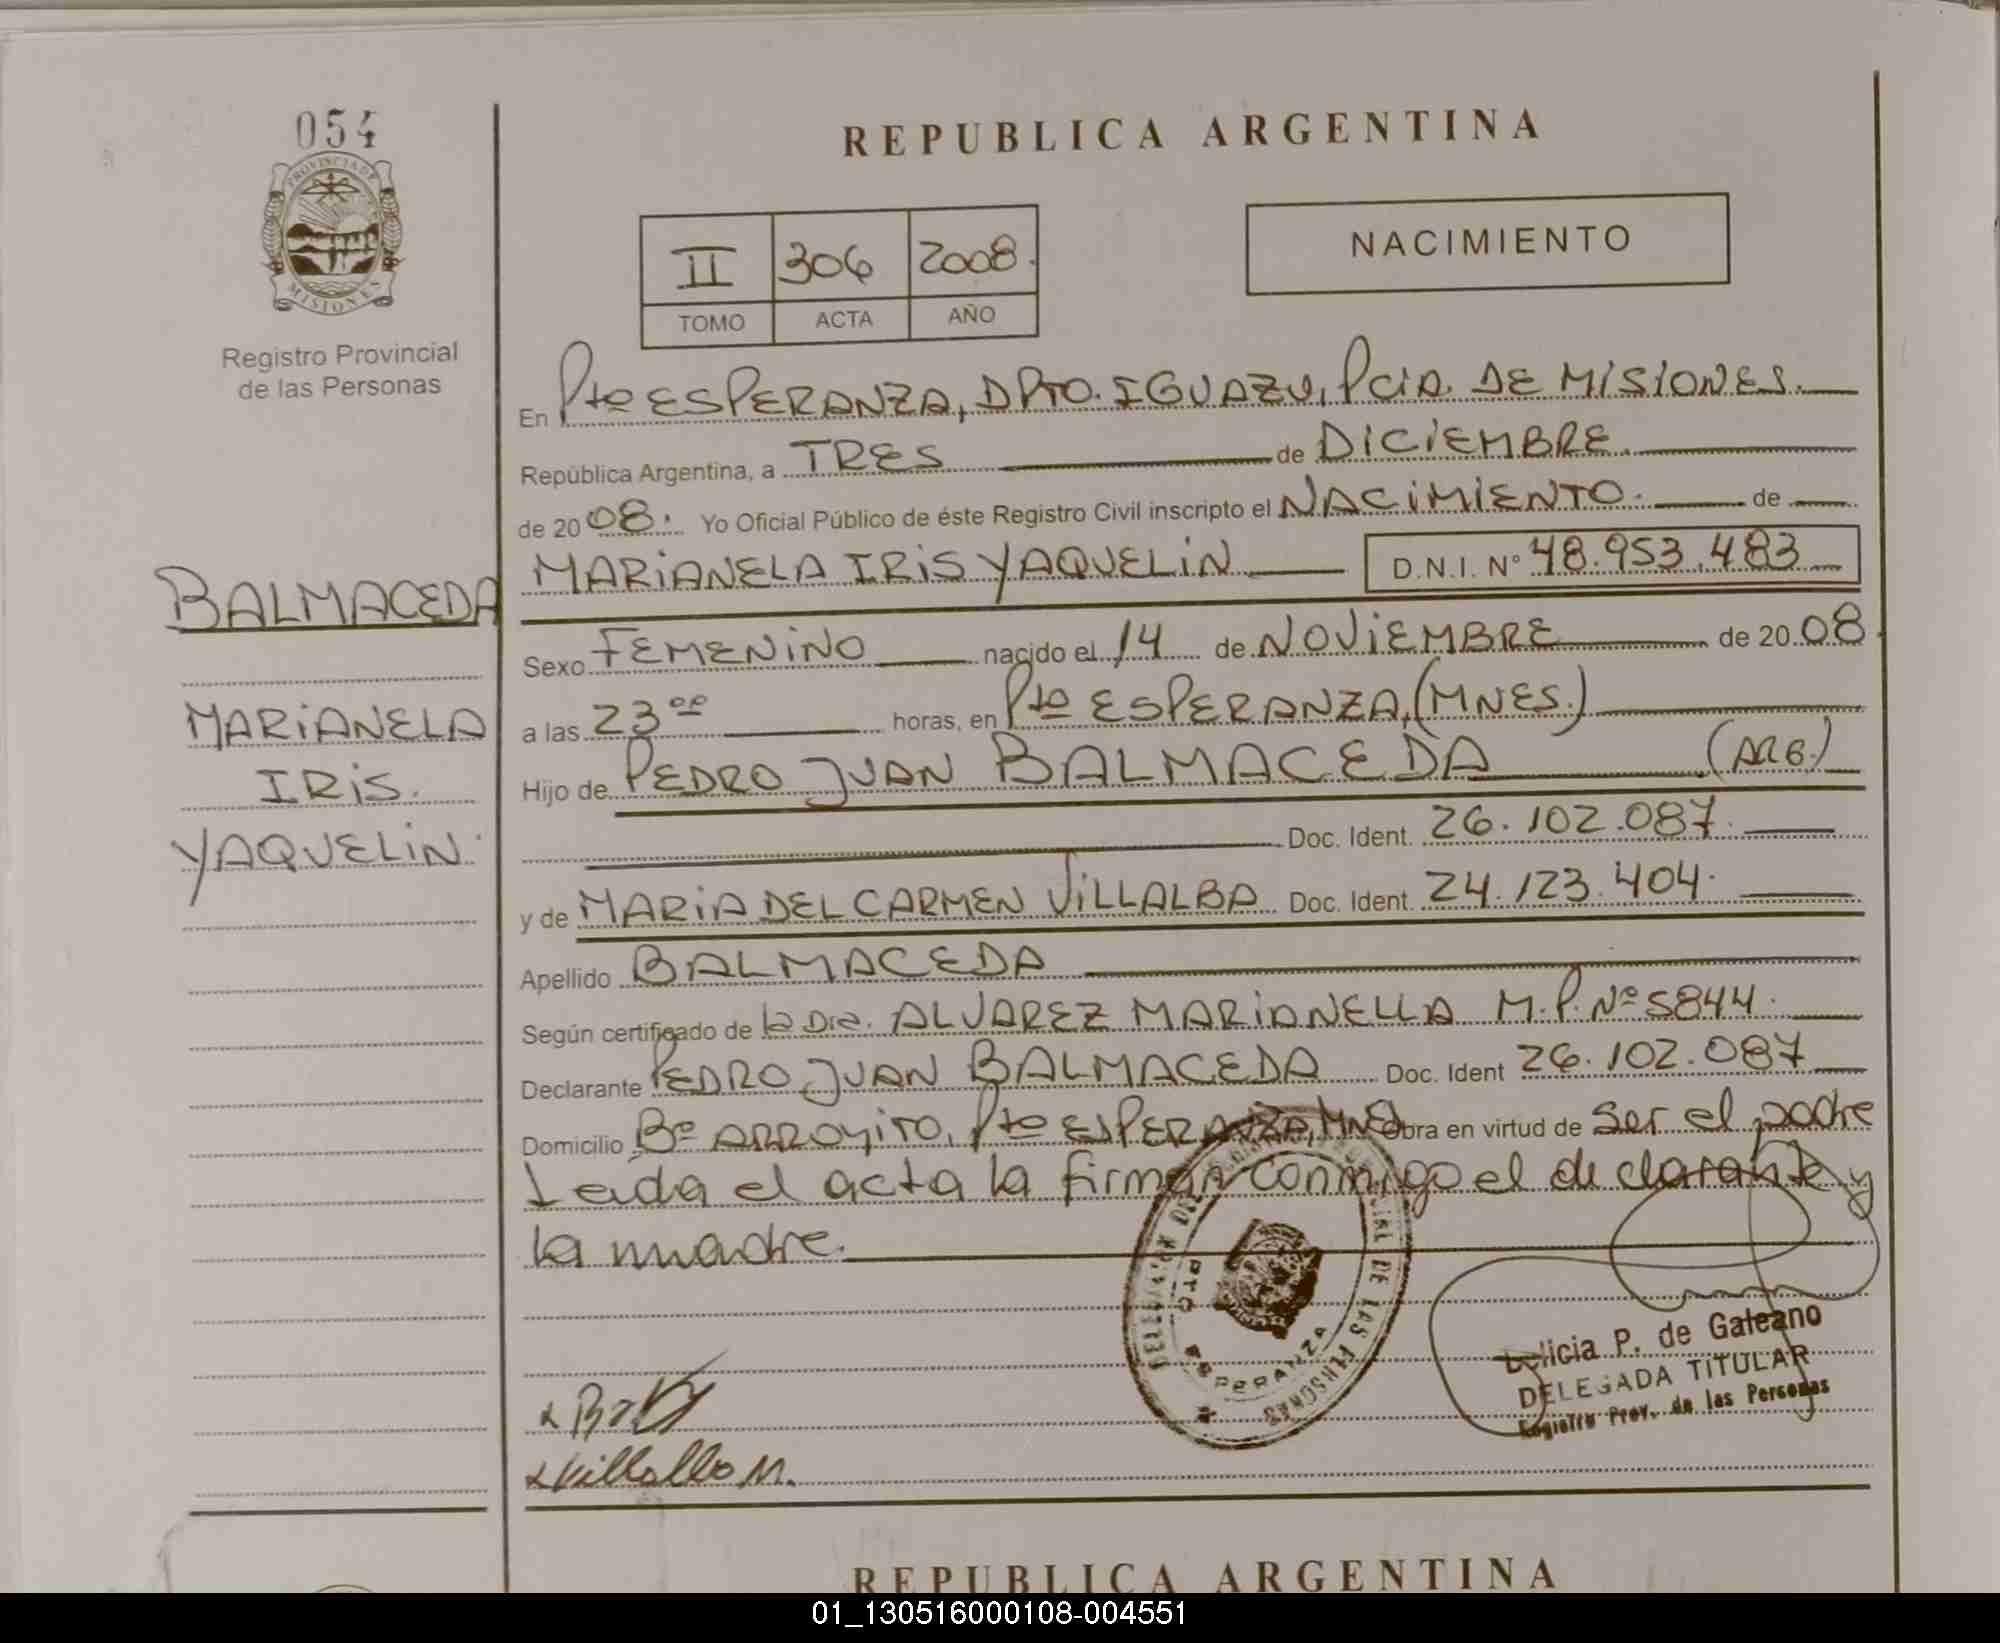 054
PROVINCIA DE
MISIONES
Registro Provincial
de las Personas
BALMACEDA
MARIANELA
IRIS.
YAQUELIN.
REPUBLICA ARGENTINA
II 306 2008.
TOMO ACTA AÑO
NACIMIENTO
En Pto ESPERANZA, DPTO. IGUAZU, PCIA. DE MISIONES.
República Argentina, a TRES de DICIEMBRE.
de 2008. Yo Oficial Público de éste Registro Civil inscripto el NACIMIENTO. de
MARIANELA IRIS YAQUELIN D.N.I. Nº 48.953.483
Sexo FEMENINO nacido el 14 de NOVIEMBRE de 2008.
a las 23 oo horas, en Pto ESPERANZA, (MNES.)
Hijo de PEDRO JUAN BALMACEDA (ARG.)
Doc. Ident. 26.102.087.
y de MARIA DEL CARMEN VILLALBA Doc. Ident. 24.123.404.
Apellido BALMACEDA
Según certificado de la Dra. ALVAREZ MARIANELLA M.P. Nº 5844.
Declarante PEDRO JUAN BALMACEDA Doc. Ident 26.102.087
Domicilio Bº ARROYITO, Pto ESPERANZA, MNES obra en virtud de ser el padre
Leída el acta la firman conmigo el declarante y
la madre.
DE LAS PERSONAS
PTO ESPERANZA
P. de Galeano
DELEGADA TITULAR
Registro Prov. de las Personas
Villalba M.
REPUBLICA ARGENTINA
01_130516000108-004551